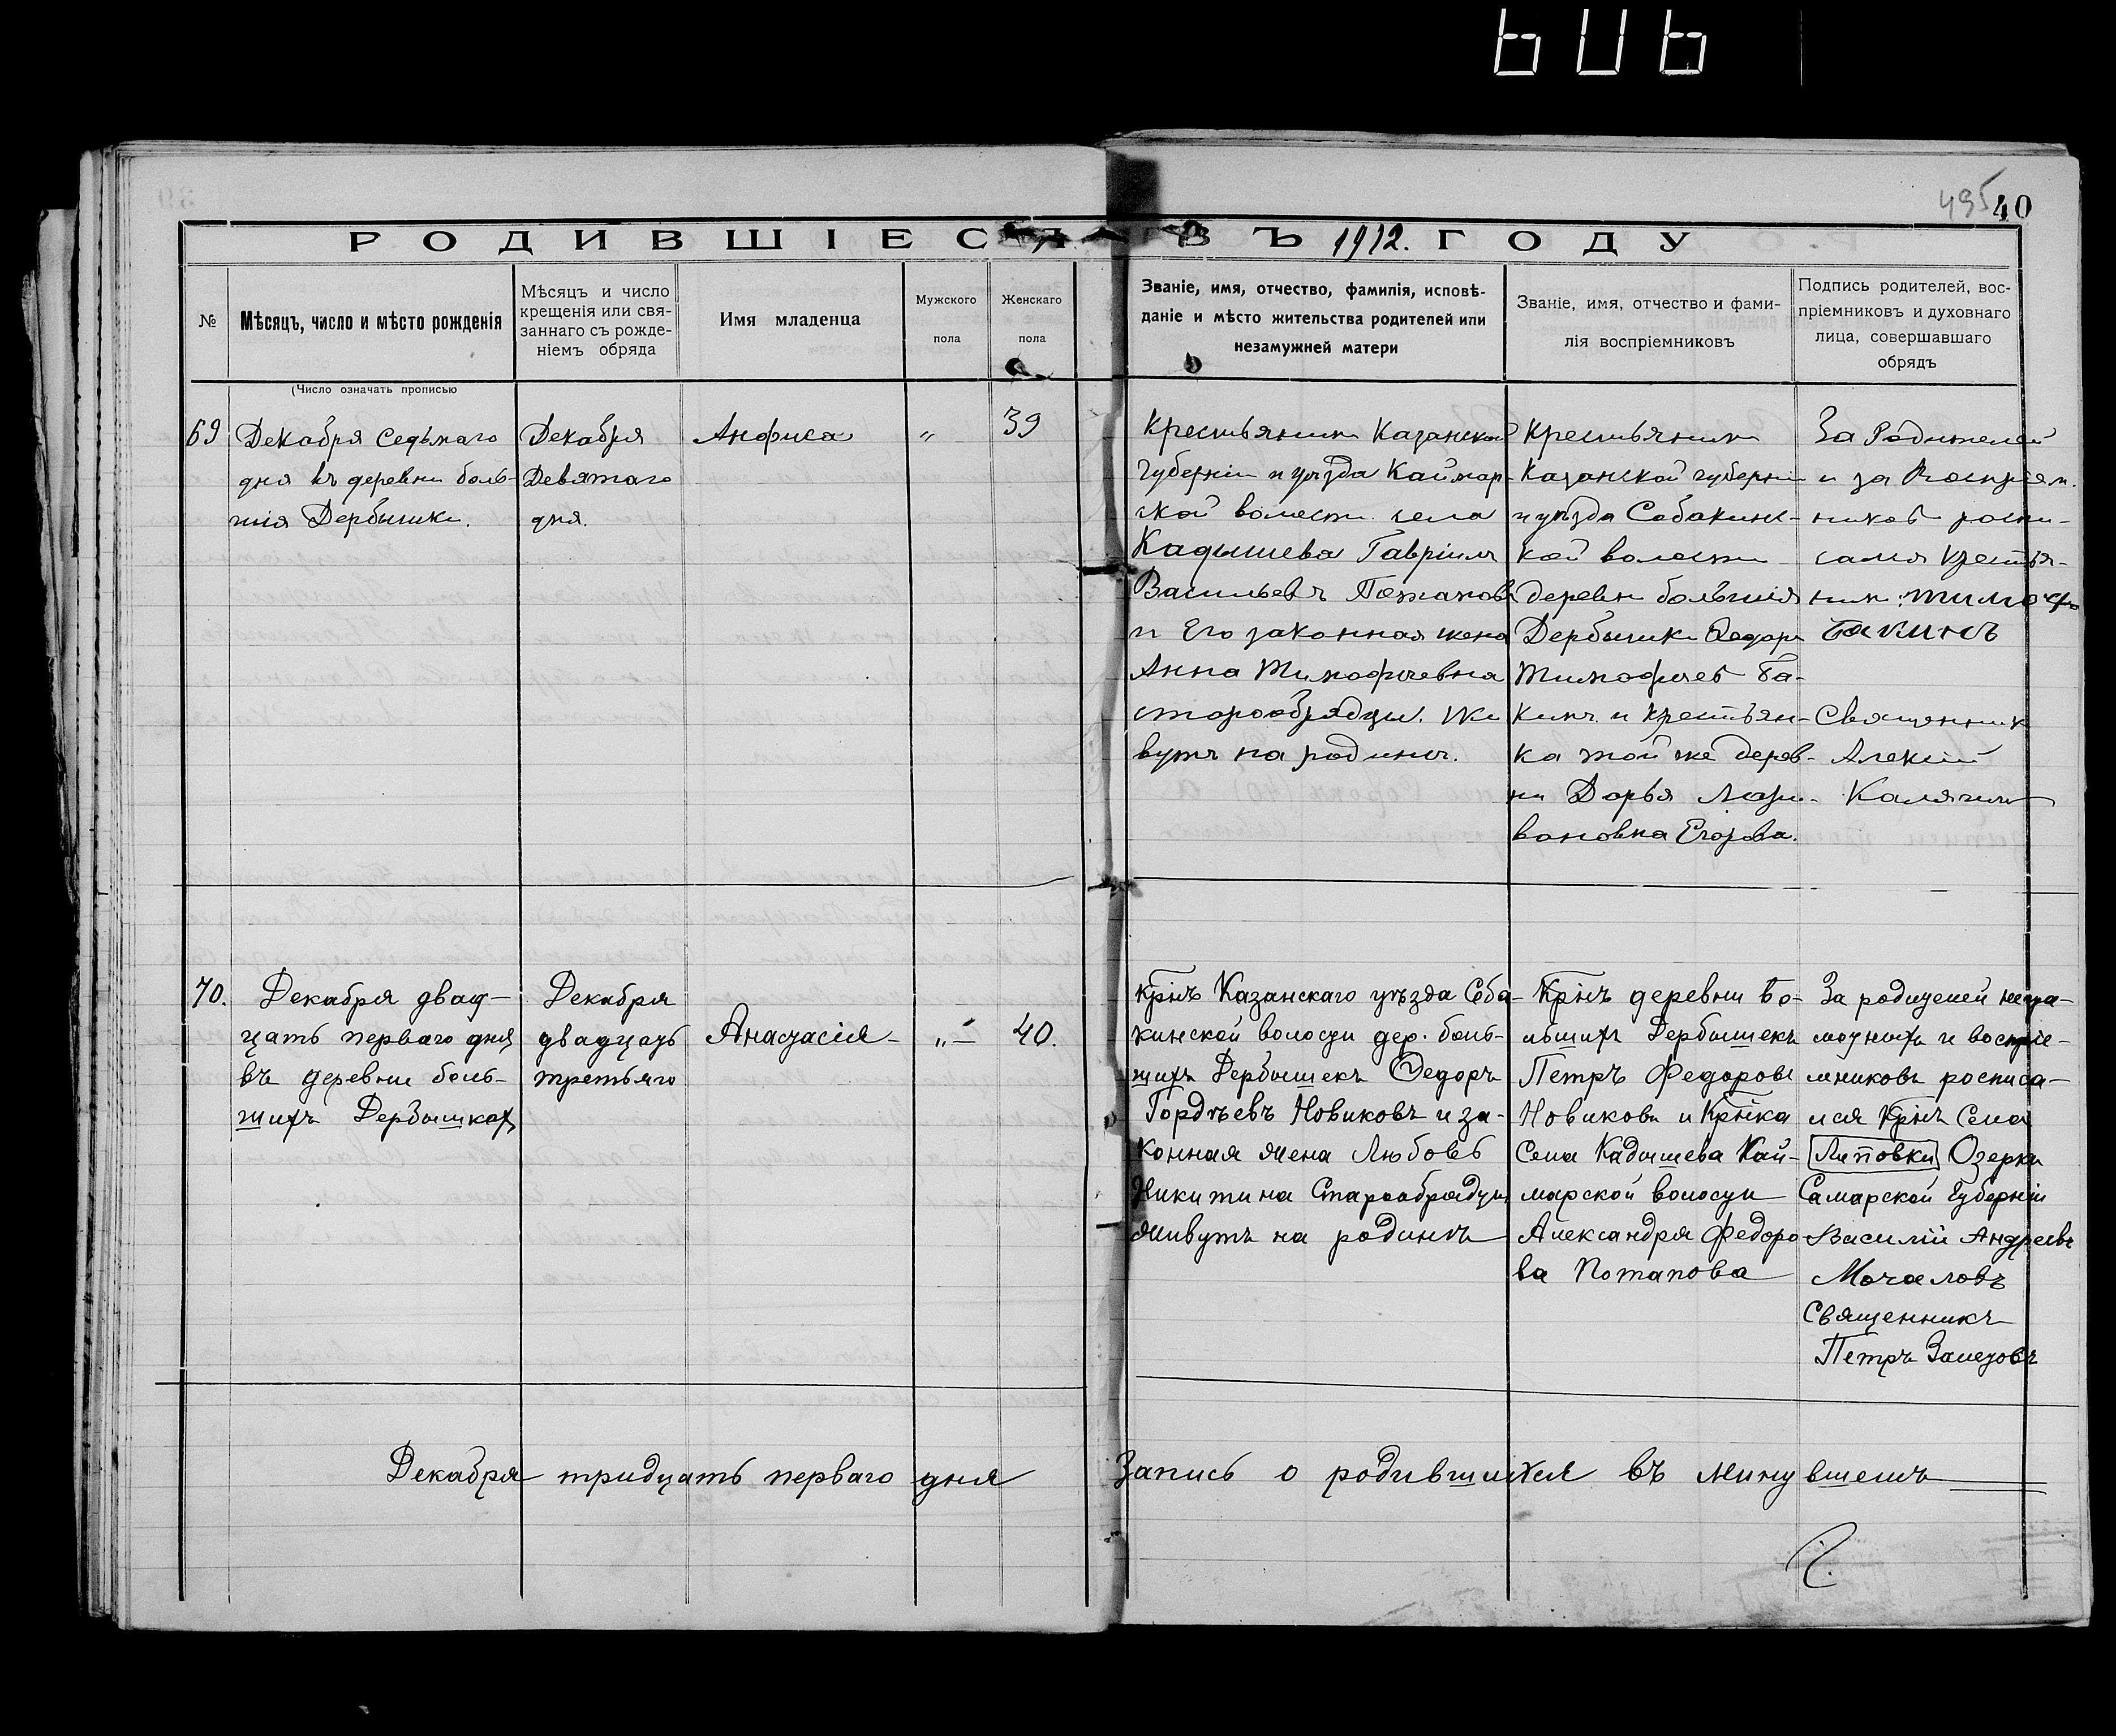 495 40
РОДИВШІЕСЯ ВЪ 1912. ГОДУ
№
Мѣсяцъ, число и мѣсто рожденія
Мѣсяцъ и число
крещенія или свя-
заннаго съ рожде-
ніемъ обряда
Имя младенца
Мужского
пола
Женскаго
пола
Званіе, имя, отчество, фамилія, исповѣ-
даніе и мѣсто жительства родителей или
незамужней матери
Званіе, имя, отчество и фами-
лія воспріемниковъ
Подпись родителей, вос-
пріемниковъ и духовнаго
лица, совершавшаго
обрядъ
(Число означать прописью
69
Декабря Седьмаго
дня въ деревни боль-
шія Дербышки.
Декабря
Девятаго
дня.
Анфиса
"
39
Крестьянинъ Казанской
губерніи и уѣзда Каймар-
ской волости села
Кадышева Гавріилъ
Васильевъ Потаповъ
и Его законная жена
Анна Тимофеевна
старообрядцы. Жи
вутъ на родинѣ.
Крестьянинъ
Казанской губерніи
и уѣзда Собакинс-
кой волости
деревни большія
Дербышки Федоръ
Тимофеев Ба-
кинъ и крестьян-
ка той же дерев-
ни Дарья
вановна Егорова.
За Родителей
и за Воспріем.
ников роспи-
сался крестья-
нин: тимофе
бакинъ
Священник
Алексій
Калягинъ
70.
Декабря двад-
цать перваго дня
въ деревни боль-
шихъ Дербышках
Декабря
двадцать
третьяго
Анастасія
"
40.
Крнъ Казанскаго уѣзда Соба-
кинской волости дер. боль-
шихъ Дербышекъ Федоръ
Гордѣевъ Новиковъ и за-
конная жена Любовь
Никитина Старообрядцы
живутъ на родинѣ
Крнъ деревни Бо-
льшихъ Дербышекъ
Петръ Федоровъ
Новиковъ и Крнка
Села Кадышева Кай-
марской волости
Александра Федоро
ва Потапова
За родителей негра-
мотныхъ и воспріе-
мниковъ росписа-
лся Крнъ Села
Липовки Озерки
Самарской Губерніи
Василій Андреевъ
Мочаловъ
Священникъ
Петръ Залетовъ
Декабря тридцать перваго дня Запись о родившихся въ минувшемъ